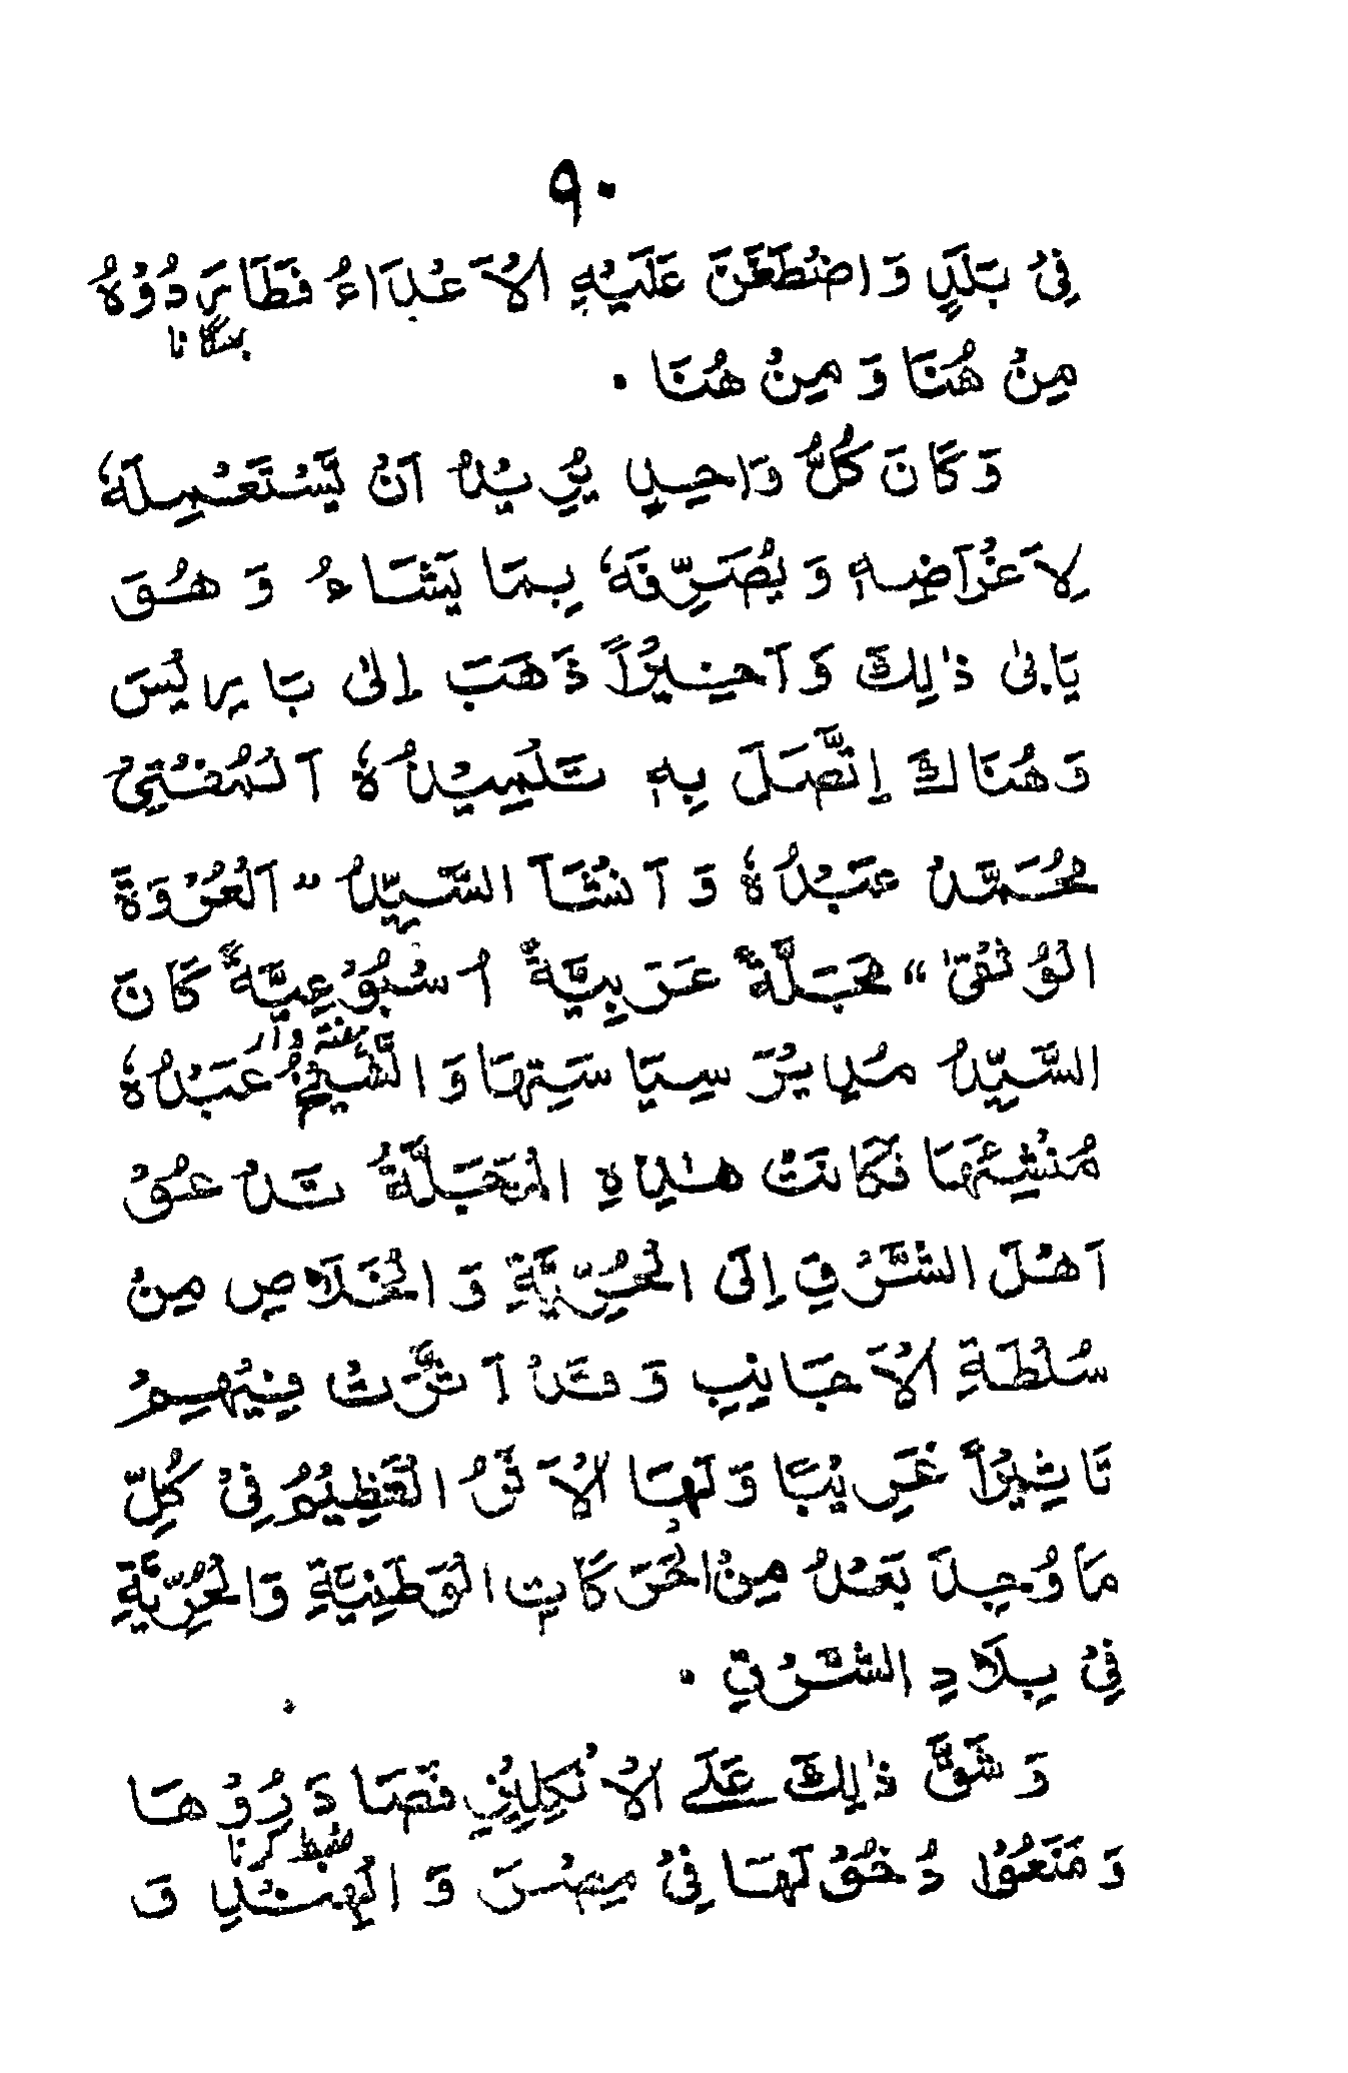 ٩٠
فِىْ بَلَدٍ وَاضْطَغَنَ عَلَيْهِ الْاَعْدَاءُ فَطَارَدُوْهُ
بھگانا
مِنْ هُنَا وَ مِنْ هُنَا ۰
وَكَانَ كُلُّ وَاحِدٍ يُرِيْدُ اَنْ يَّسْتَعْمِلَهٗ
لِاَغْرَاضِهٖ وَ يُصَرِّفَهٗ بِمَا يَشَاءُ وَ هُوَ
يَابىٰ ذٰلِكَ وَ اَخِيْرًا ذَهَبَ اِلىٰ بَارِيْسَ
وَهُنَاكَ اِتَّصَلَ بِهٖ تَلْمِيْذُهٗ اَلْمُفْتِىْ
مُحَمَّدْ عَبْدُهٗ وَ اَنْشَأَ السَّيِّدُ ”اَلْعُرْوَةَ
الْوُثْقىٰ“ مَجَلَّةً عَرَبِيَّةً اُسْبُوْعِيَّةً كَانَ
ہفتہ وار
السَّيِّدُ مُدِيْرَ سِيَاسَتِهَا وَ الشَّيْخُ عَبْدُهٗ
مُنْشِئَهَا فَكَانَتْ هٰذِهِ الْمَجَلَّةُ تَدْعُوْ
اَهْلَ الشَّرْقِ اِلَى الْحُرِّيَّةِ وَ الْخَلَاصِ مِنْ
سُلْطَةِ الْاَجَانِبِ وَ قَدْ اَثَّرَتْ فِيْهِمْ
تَاثِيْرًا غَرِيْبًا وَ لَهَا الْاَثَرُ الْعَظِيْمُ فِىْ كُلِّ
مَا وُجِدَ بَعْدُ مِنْ الْحَرَكَاتِ الْوَطَنِيَّةِ وَ الْحُرِّيَّةِ
فِىْ بِلَادِ الشَّرْقِ ۰
وَ شَقَّ ذٰلِكَ عَلَے الْاِنْكِلِيْزِ فَصَادَرُوْهَا
ضبط کرنا
وَ مَنَعُوْا دُخُوْلَهَا فِىْ مِصْرَ وَ الْهِنْدِ وَ